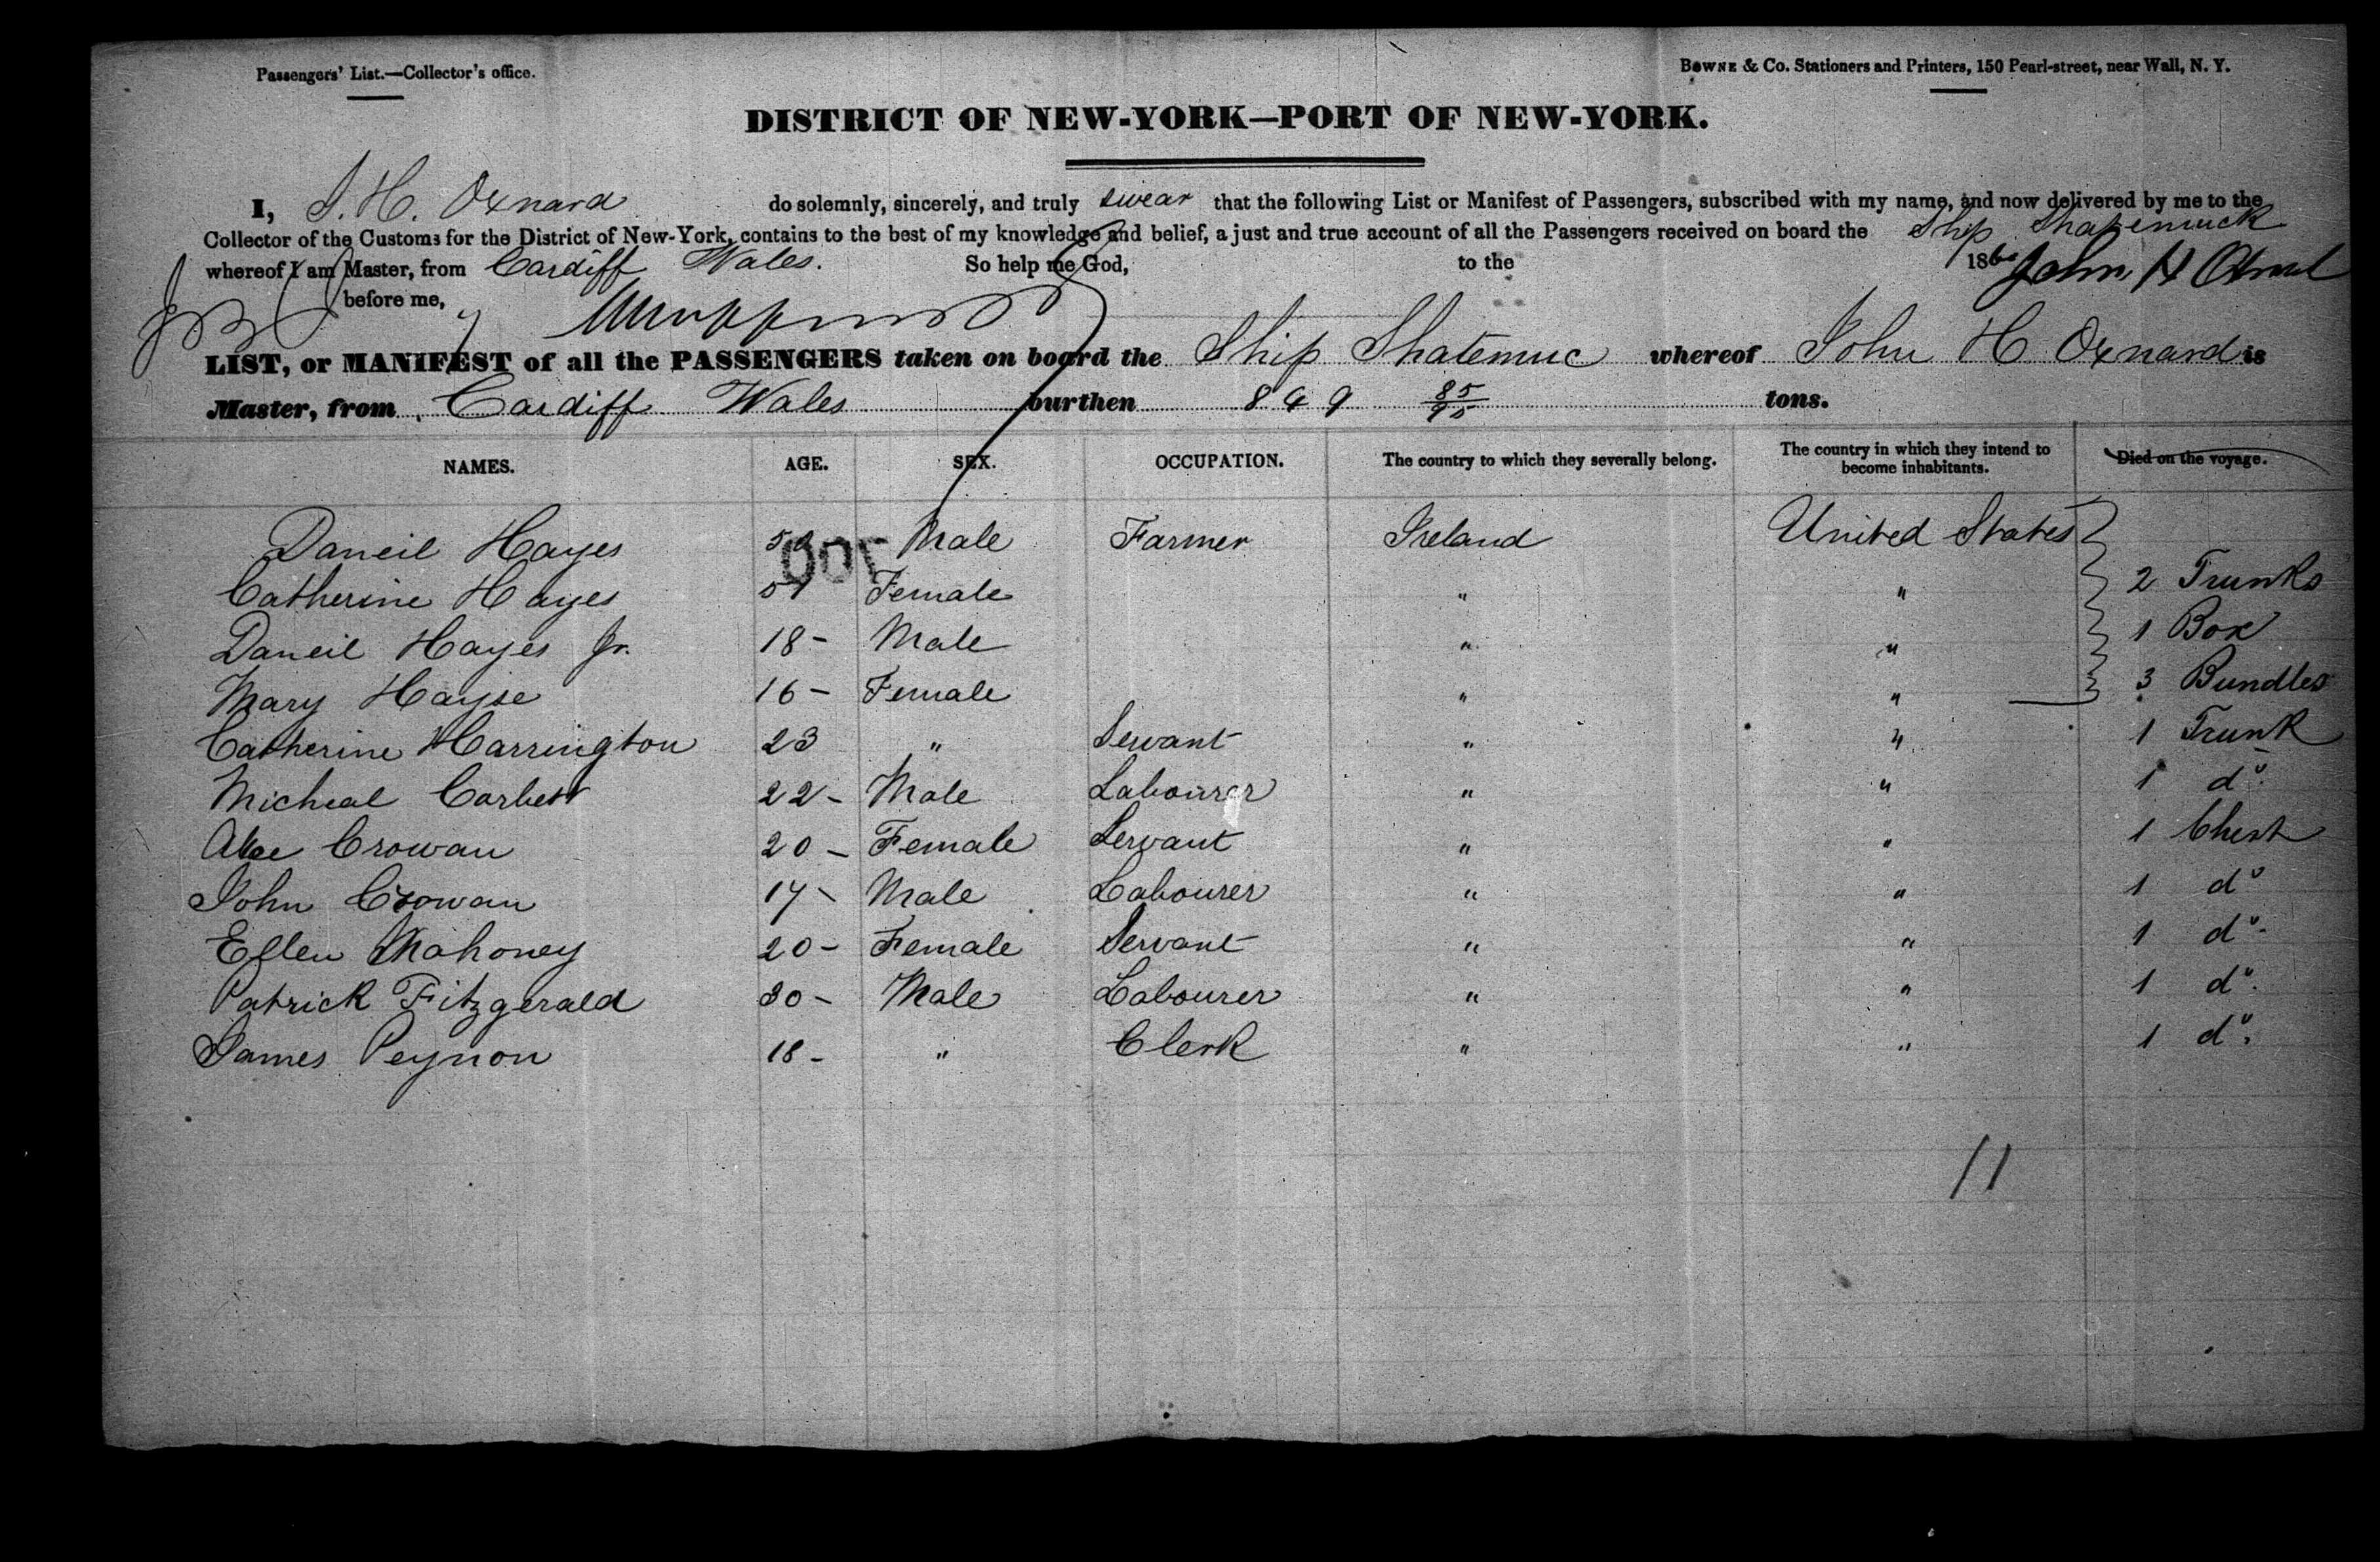 Passengers' List.—Collector's office.
Bowne & Co. Stationers and Printers, 150 Pearl-street, near Wall, N. Y.
DISTRICT OF NEW-YORK—PORT OF NEW-YORK.
I, J. H. Oxnard do solemnly, sincerely, and truly swear that the following List or Manifest of Passengers, subscribed with my name, and now delivered by me to the
Collector of the Customs for the District of New-York, contains to the best of my knowledge and belief, a just and true account of all the Passengers received on board the Ship Shatemuck
whereof I am Master, from Cardiff Wales. So help me God, to the 186
before me,
LIST, or MANIFEST of all the PASSENGERS taken on board the Ship Shatemuc whereof John H Oxnard is
Master, from Cardiff Wales burthen 849 85/95 tons.
NAMES. AGE. SEX. OCCUPATION. The country to which they severally belong. The country in which they intend to become inhabitants. Died on the voyage.
Daneil Hayes Male Farmer Ireland United States
Catherine Hayes 51 Female " " 2 Trunks
Daneil Hayes Jr. 18 - Male " " 1 Box
Mary Hayse 16 - Female " " 3 Bundles
Catherine Harrington 23 " Servant " " 1 Trunk
Micheal Corbett 22 - Male Labourer " " 1 do.
Crowan 20 - Female Servant " " 1 Chest
John Crowan 17 - Male Labourer " " 1 do
Ellen Mahoney 20 - Female Servant " " 1 do.
Patrick Fitzgerald 30 - Male Labourer " " 1 do.
James Peynon 18 - " Clerk " " 1 do.
11